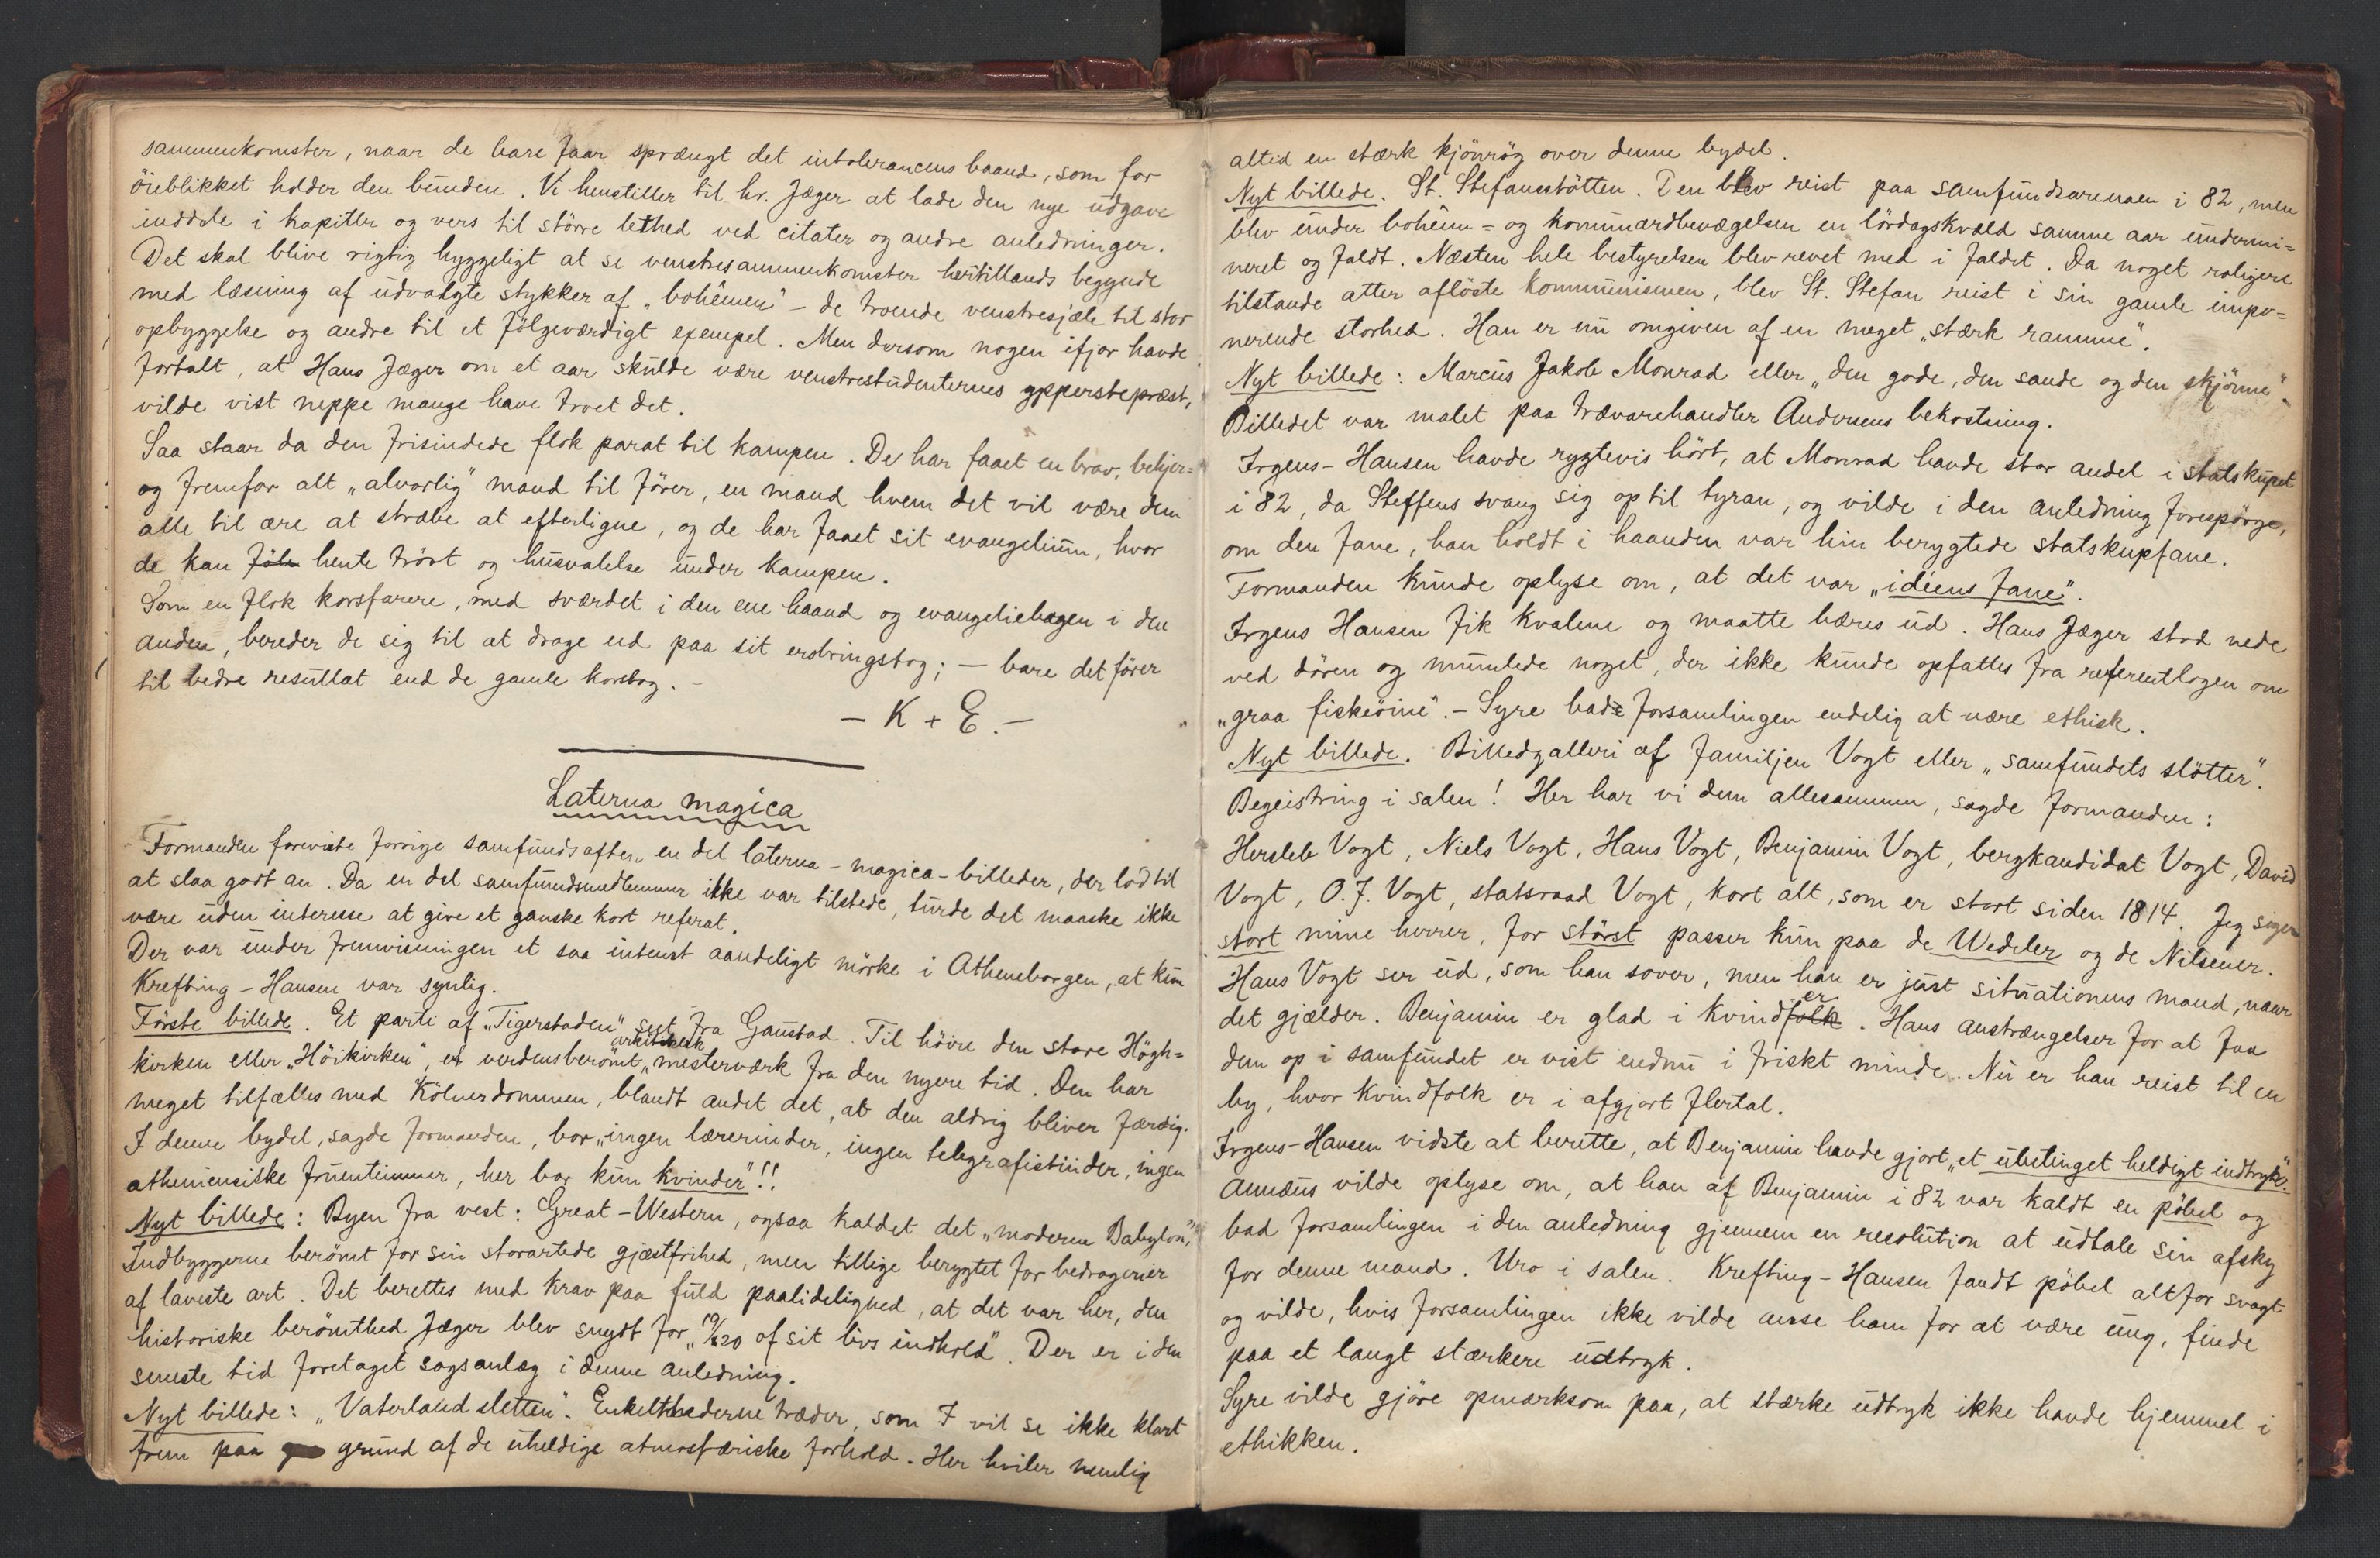 sammenkomster, naar de bare faar sprængt det intolerancens baand, som for
öieblikket holder den bunden. Vi henstiller til hr. Jæger at lade den nye udgave
inddele i kapitler og vers til större lethed ved citater og andre anledninger.
Det skal blive rigtig hyggeligt at se venstresammenkomster hertillands begynde
med læsning af udvalgte stykker af „bohêmen“ – de troende venstresjæle til stor
opbyggelse og andre til et fölgeværdigt exempel. Men dersom nogen ifjor havde
fortalt, at Hans Jæger om et aar skulde være venstrestudenternes ypperstepræst,
vilde vist neppe mange have troet det.
Saa staar da den frisindede flok parat til kampen. De har faaet en brav, behjer=
og fremfor alt „alvorlig“ mand til förer, en mand hvem det vil være dem
alle til ære at stræbe at efterligne, og de har faaet sit evangelium, hvor
de kan föle hente tröst og husvalelse under kampen.
Som en flok korsfarere, med sværdet i den ene haand og evangeliebogen i den
anden, bereder de sig til at drage ud paa sit erobringstog; – bare det förer
til bedre resultat end de gamle korstog. –
– K + E. –
Laterna magica
Formanden foreviste forrige samfundsaften en del laterna-magica-billeder, der lod til
at slaa godt an. Da en del samfundsmedlemmer ikke var tilstede, turde det maaske ikke
være uden interesse at give et ganske kort referat.
Der var under fremvisningen et saa intenst aandeligt mörke i Atheneborgen, at kun
Krefting-Hansen var synlig.
Förste billede. Et parti af „Tigerstaden“ set fra Gaustad. Til höire den store Högh=
kirken eller „Höikirken“, et verdensberömt „arkitektonisk mesterværk fra den nyere tid. Den har
meget tilfælles med Kölnerdommen, blandt andet det, at den aldrig bliver færdig.
I denne bydel, sagde formanden, bor „ingen lærerinder, ingen telegrafistinder, ingen
atheniensiske fruentimmer, her bor kun kvinder“!!
Nyt billede: Byen fra vest: Great-Western, ogsaa kaldet det „moderne Babylon“,
Indbyggerne berömt for sin storartede gjæstfrihed, men tillige berygtet for bedragerier
af laveste art. Det berettes med krav paa fuld paalidelighed, at det var her, den
historiske berömthed Jæger blev snydt for „19/20 af sit livs indhold“. Der er i den
seneste tid foretaget sagsanlæg i denne anledning.
Nyt billede: „Vaterland sletten“. Enkelthederne træder, som I vil se ikke klart
frem paa grund af de uheldige atmosfæriske forhold. Her hviler nemlig
altid en stærk kjönrög over denne bydel.
Nyt billede. St. Stefansstötten. Den blev reist paa samfundsarenaen i 82, men
blev under bohêm= og kommunardbevægelsen en lördagskvæld samme aar undermi=
neret og faldt. Næsten hele bestyrelsen blev revet med i faldet. Da noget roligere
tilstande atter aflöste kommunismen, blev St. Stefan reist i sin gamle impo=
nerende storhed. Han er nu omgiven af en meget „stærk ramme“.
Nyt billede: Marcus Jakob Monrad eller „den gode, den sande og den skjönne“.
Billedet var malet paa trævarehandler Andersens bekostning.
Irgens-Hansen havde rygtevis hört, at Monrad havde stor andel i statskupet
i 82, da Steffens svang sig op til tyran, og vilde i den anledning forespörge,
om den fane, han holdt i haanden var hin berygtede statskupfane.
Formanden kunde oplyse om, at det var „idéens fane“.
Irgens Hansen fik kvalme og maatte bæres ud. Hans Jæger stod nede
ved dören og mumlede noget, der ikke kunde opfattes fra referentlogen om
„graa fiskeöine“. – Syre bade forsamlingen endelig at være ethisk.
Nyt billede. Billedgalleri af familjen Vogt eller „samfundets stötter“.
Begeistring i salen! Her har vi dem allesammen, sagde formanden:
Hersleb Vogt, Niels Vogt, Hans Vogt, Benjamin Vogt, bergkandidat Vogt, David
Vogt, O.J. Vogt, statsraad Vogt, kort alt, som er stort siden 1814. Jeg siger
stort mine herrer, for störst passer kun paa de Wedeler og de Nilsener.
Hans Vogt ser ud, som han sover, men han er just situationens mand, naar
det gjælder. Benjamin er glad i kvindfolk er. Hans anstrængelser for at faa
dem op i samfundet er vist endnu i friskt minde. Nu er han reist til en
by, hvor kvindfolk er i afgjort flertal.
Irgens-Hansen vidste at berette, at Benjamin havde gjort „et ubetinget heldigt indtryk“.
Annæus vilde oplyse om, at han af Benjamin i 82 var kaldt en pöbel og
bad forsamlingen i den anledning gjennem en resolution at udtale sin afsky
for denne mand. Uro i salen. Krefting-Hansen fandt pöbel altfor svagt
og vilde, hvis forsamlingen ikke vilde anse ham for at være ung, finde
paa et langt stærkere udtryk.
Syre vilde gjöre opmærksom paa, at stærke udtryk ikke havde hjemmel i
ethikken.